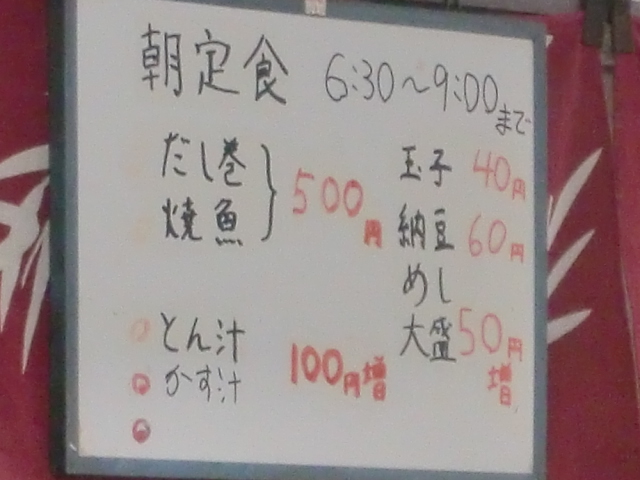 朝定食 6:30～9:00まで
だし巻
焼魚
500円
とん汁
かす汁
100円増
玉子 40円
納豆 60円
めし
大盛 50円
増